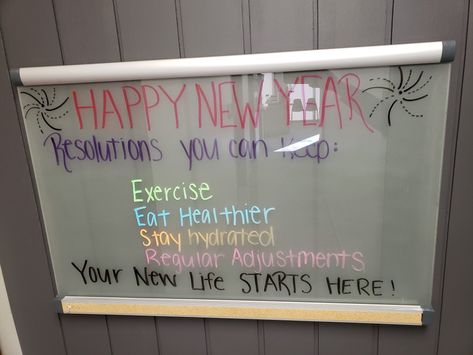 HAPPY NEW YEAR
Resolutions you can keep:
Exercise
Eat Healthier
Stay hydrated
Regular Adjustments
Your New Life STARTS HERE!